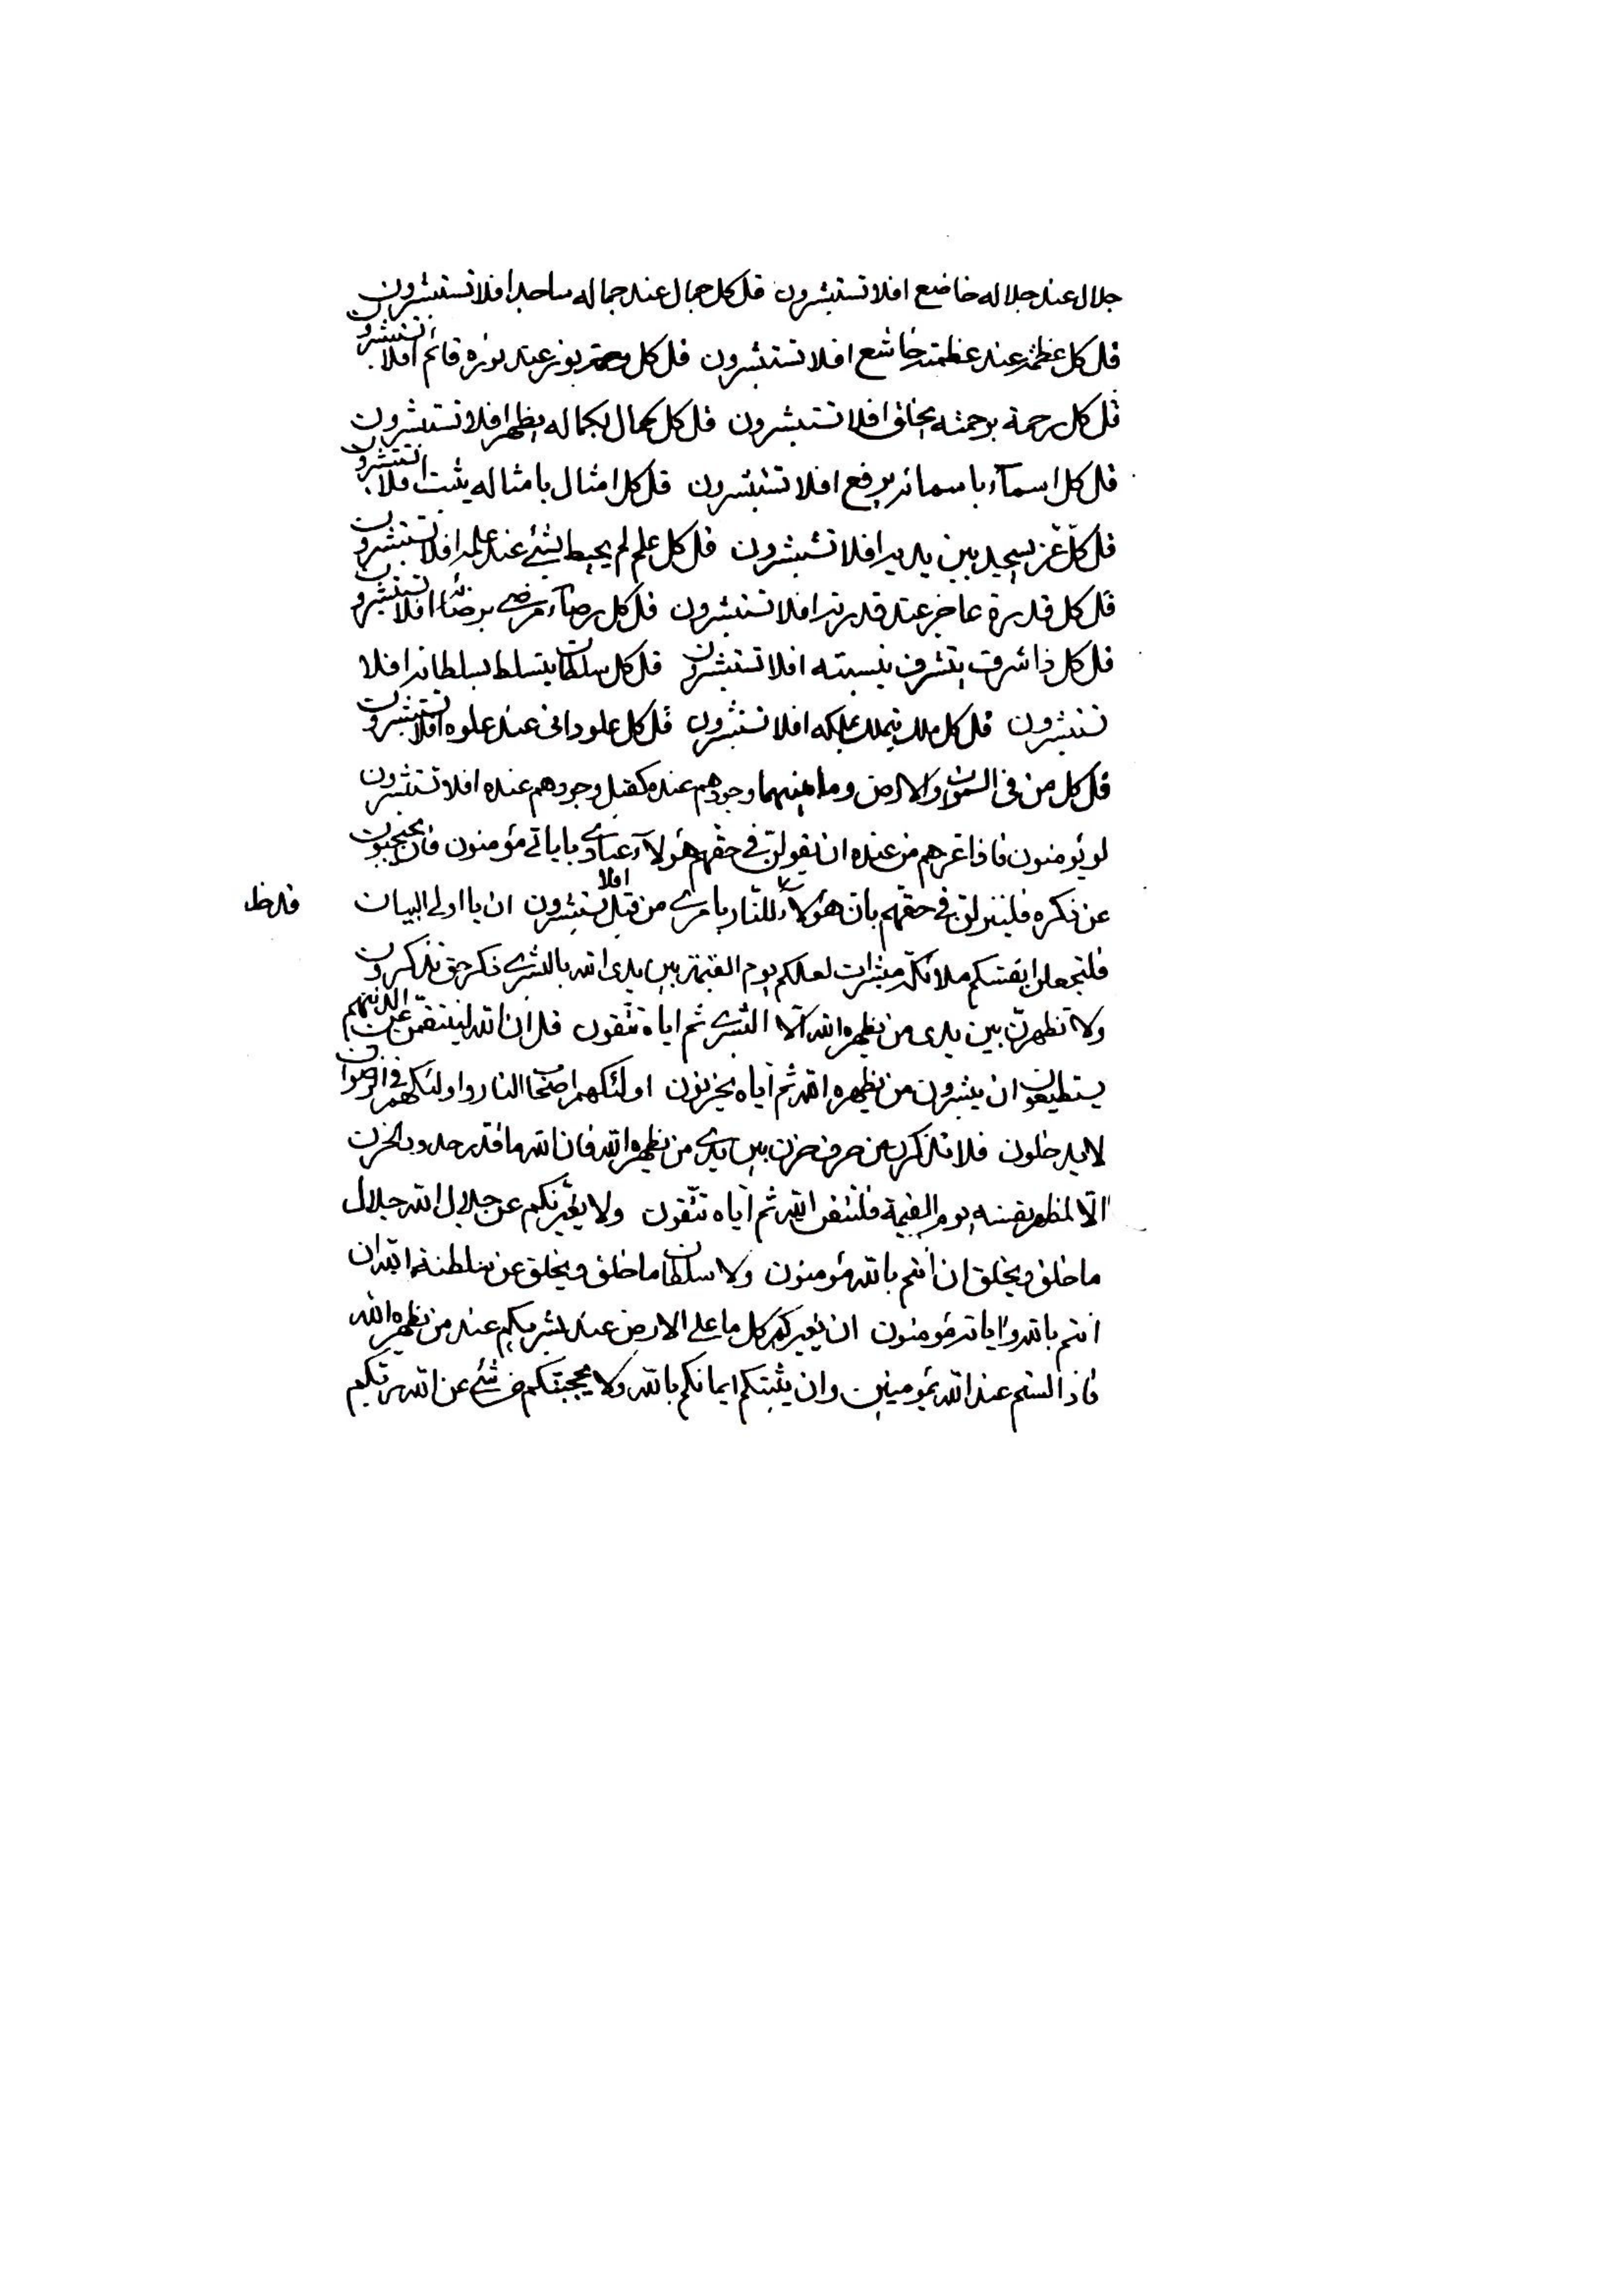 جلال عند جلاله خاضع افلا تستبشرون قل كل جمال عند جماله ساجد افلا تستبشرون
قل كل عظمة عند عظمته خاشع افلا تستبشرون قل كل نور عند نوره قائم افلا تستبشرون
قل كل رحمة برحمته يخلق افلا تستبشرون قل كل كمال بكماله يظهر افلا تستبشرون
قل كل اسمآء باسمائه يرفع افلا تستبشرون قل كل امثال بامثاله يثبت افلا تستبشرون
قل كلّ عزّ يسجد بين يديه افلا تستبشرون قل كل علم لم يحيط بشئ عند علمه افلا تستبشرون
قل كل قدرة عاجز عند قدرته افلا تستبشرون قل كل رضآء مرضى برضائه افلا تستبشرون
قل كل ذا شرف يتشرف بنسبته افلا تستبشرون قل كل سلطان يتسلط بسلطانه افلا
تستبشرون قل كل ملك يتملك بملكه افلا تستبشرون قل كل علو دانى عند علوه افلا تستبشرون
قل كل من فى السموات والارض وما بينهما وجودهم عنده كقبل وجودهم عنده افلا تستبشرون
لو يؤمنون فاذا عزهم من عنده ان يقولن في حقهم هؤلآء عبادى باياتى مؤمنون فان يحتجبون
عن ذكره فلينزلن في حقهم بان هؤلآء للنار بامرى من قبل افلا تستبشرون ان يا اولى البيان
فلتجعلن انفسكم ملائكة مبشرات لعلكم يوم القيمة بين يدى الله بالبشرى ذكر حق تذكرون
ولا تظهرن بين يدى من يظهره الله الا البشرى ثم اياه تتقون قل ان الله لينتقمن عن الذينهم
يستطيعون ان يبشرون من يظهره الله ثم اياه يحزنون اولئكهم اصحاب النار واولئكهم في الرضوان
لا يدخلون فلا تذكرن من حرف حزن بين يدى من يظهره الله فان الله ما قدر حدود الحزن
الا لمظهر نفسه يوم القيمة فلتتقن الله ثم اياه تتقون ولا يغرنكم عن جلال الله جلال
ما خلق ويخلق ان انتم بالله مؤمنون ولا سلطان ما خلق ويخلق عن سلطنة الله ان
انتم بالله واياته مؤمنون ان يغيركم كل ما على الارض عند بشريكم عند من يظهره الله
فاذا لستم عند الله بمؤمنين وان يثبتكم ايمانكم بالله ولا يحجبنكم من شئ عن الله ربكم